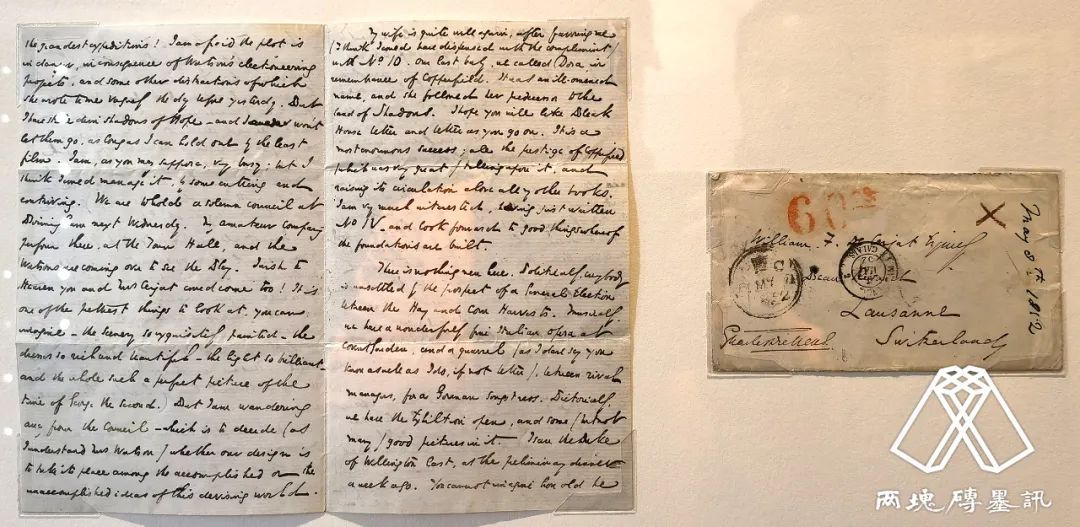 the grandest expeditions! I am afraid the plot is
in danger, in consequence of Watson's electioneering
projects, and some other distractions of which
she wrote to me vaguely the day before yesterday. But
I have still dim shadows of Hope – and I won't
let them go, as long as I can hold out by the least
film. I am, as you may suppose, very busy; but I
think I could manage it, by some cutting and
contriving. We are to hold a solemn council at
Birmingham next Wednesday. My amateur company
perform there, at the Town Hall; and the
Watsons are coming over to see the Play. I wish to
Heaven you and Mrs Cerjat could come too! It is
one of the prettiest things to look at, you can
imagine – the scenery so exquisitely painted – the
dresses so rich and beautiful – the light so brilliant –
and the whole such a perfect picture of the
time of George the Second. But I am wandering
away from the Council – which is to decide (as
I understand Mrs Watson) whether our design is
to take its place among the accomplished or the
unaccomplished ideas of this deceiving world.
My wife is quite well again, after favoring me
(I think I could have dispensed with the compliment)
with No 10. Our last baby, we called Dora in
remembrance of Copperfield. It was an ill-omened
name, and she followed her predecessor to the
land of Shadows. I hope you will like Bleak
House better and better as you go on. It is a
most enormous success; all the prestige of Copperfield
(which was very great) falling upon it, and
raising its circulation above all my other books.
I am very much interested in it, having just written
No IV – and look forward to good things whereof
the foundations are built.
There is nothing new here. Politically, everybody
is unsettled by the prospect of a General Election
between the Hay and Corn Harvests. Musically
we have a wonderfully fine Italian opera at
Covent Garden, and a quarrel (as I dare say you
know as well as I do, if not better), between rival
managers, for a German Songstress. Pictorially,
we have the Exhibition open, and some (but not
many) good pictures in it. I saw the Duke
of Wellington last, at the preliminary dinner
a week ago. You cannot imagine how old he
60
May 8th 1852
William F. de Cerjat Esquire
Lausanne
Switzerland
两塊磚墨訊